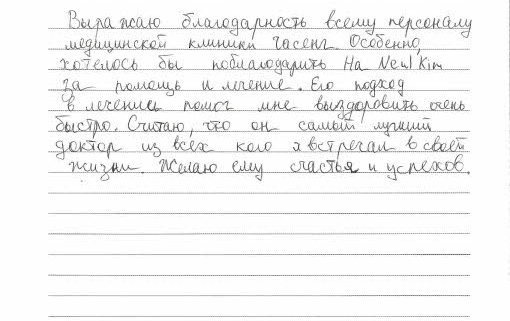 Выражаю благодарность всему персоналу
медицинской клиники Часенг. Особенно,
хотелось бы поблагодарить Ha Neul Kim
за помощь и лечение. Его подход
в лечение помог мне выздоровить очень
быстро. Считаю, что он самый лучший
доктор из всех кого я встречал в своей
жизни. Желаю ему счастья и успехов.